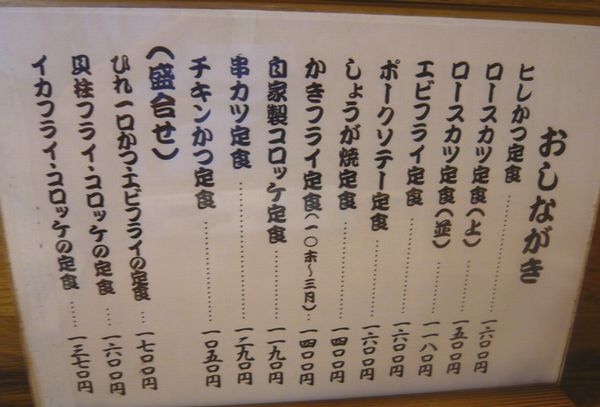 おしながき
ヒレかつ定食………一六〇〇円
ロースカツ定食(上)……一五〇〇円
ロースカツ定食(並)……一一八〇円
エビフライ定食………一六〇〇円
ポークソテー定食………一六〇〇円
しょうが焼定食………一四〇〇円
かきフライ定食(一〇月〜三月)…一四〇〇円
自家製コロッケ定食………一一九〇円
串カツ定食………一二九〇円
チキンかつ定食………一〇五〇円
(盛合せ)
ひれ一口かつ・エビフライの定食…一七〇〇円
貝柱フライ・コロッケの定食…一六〇〇円
イカフライ・コロッケの定食…一三七〇円